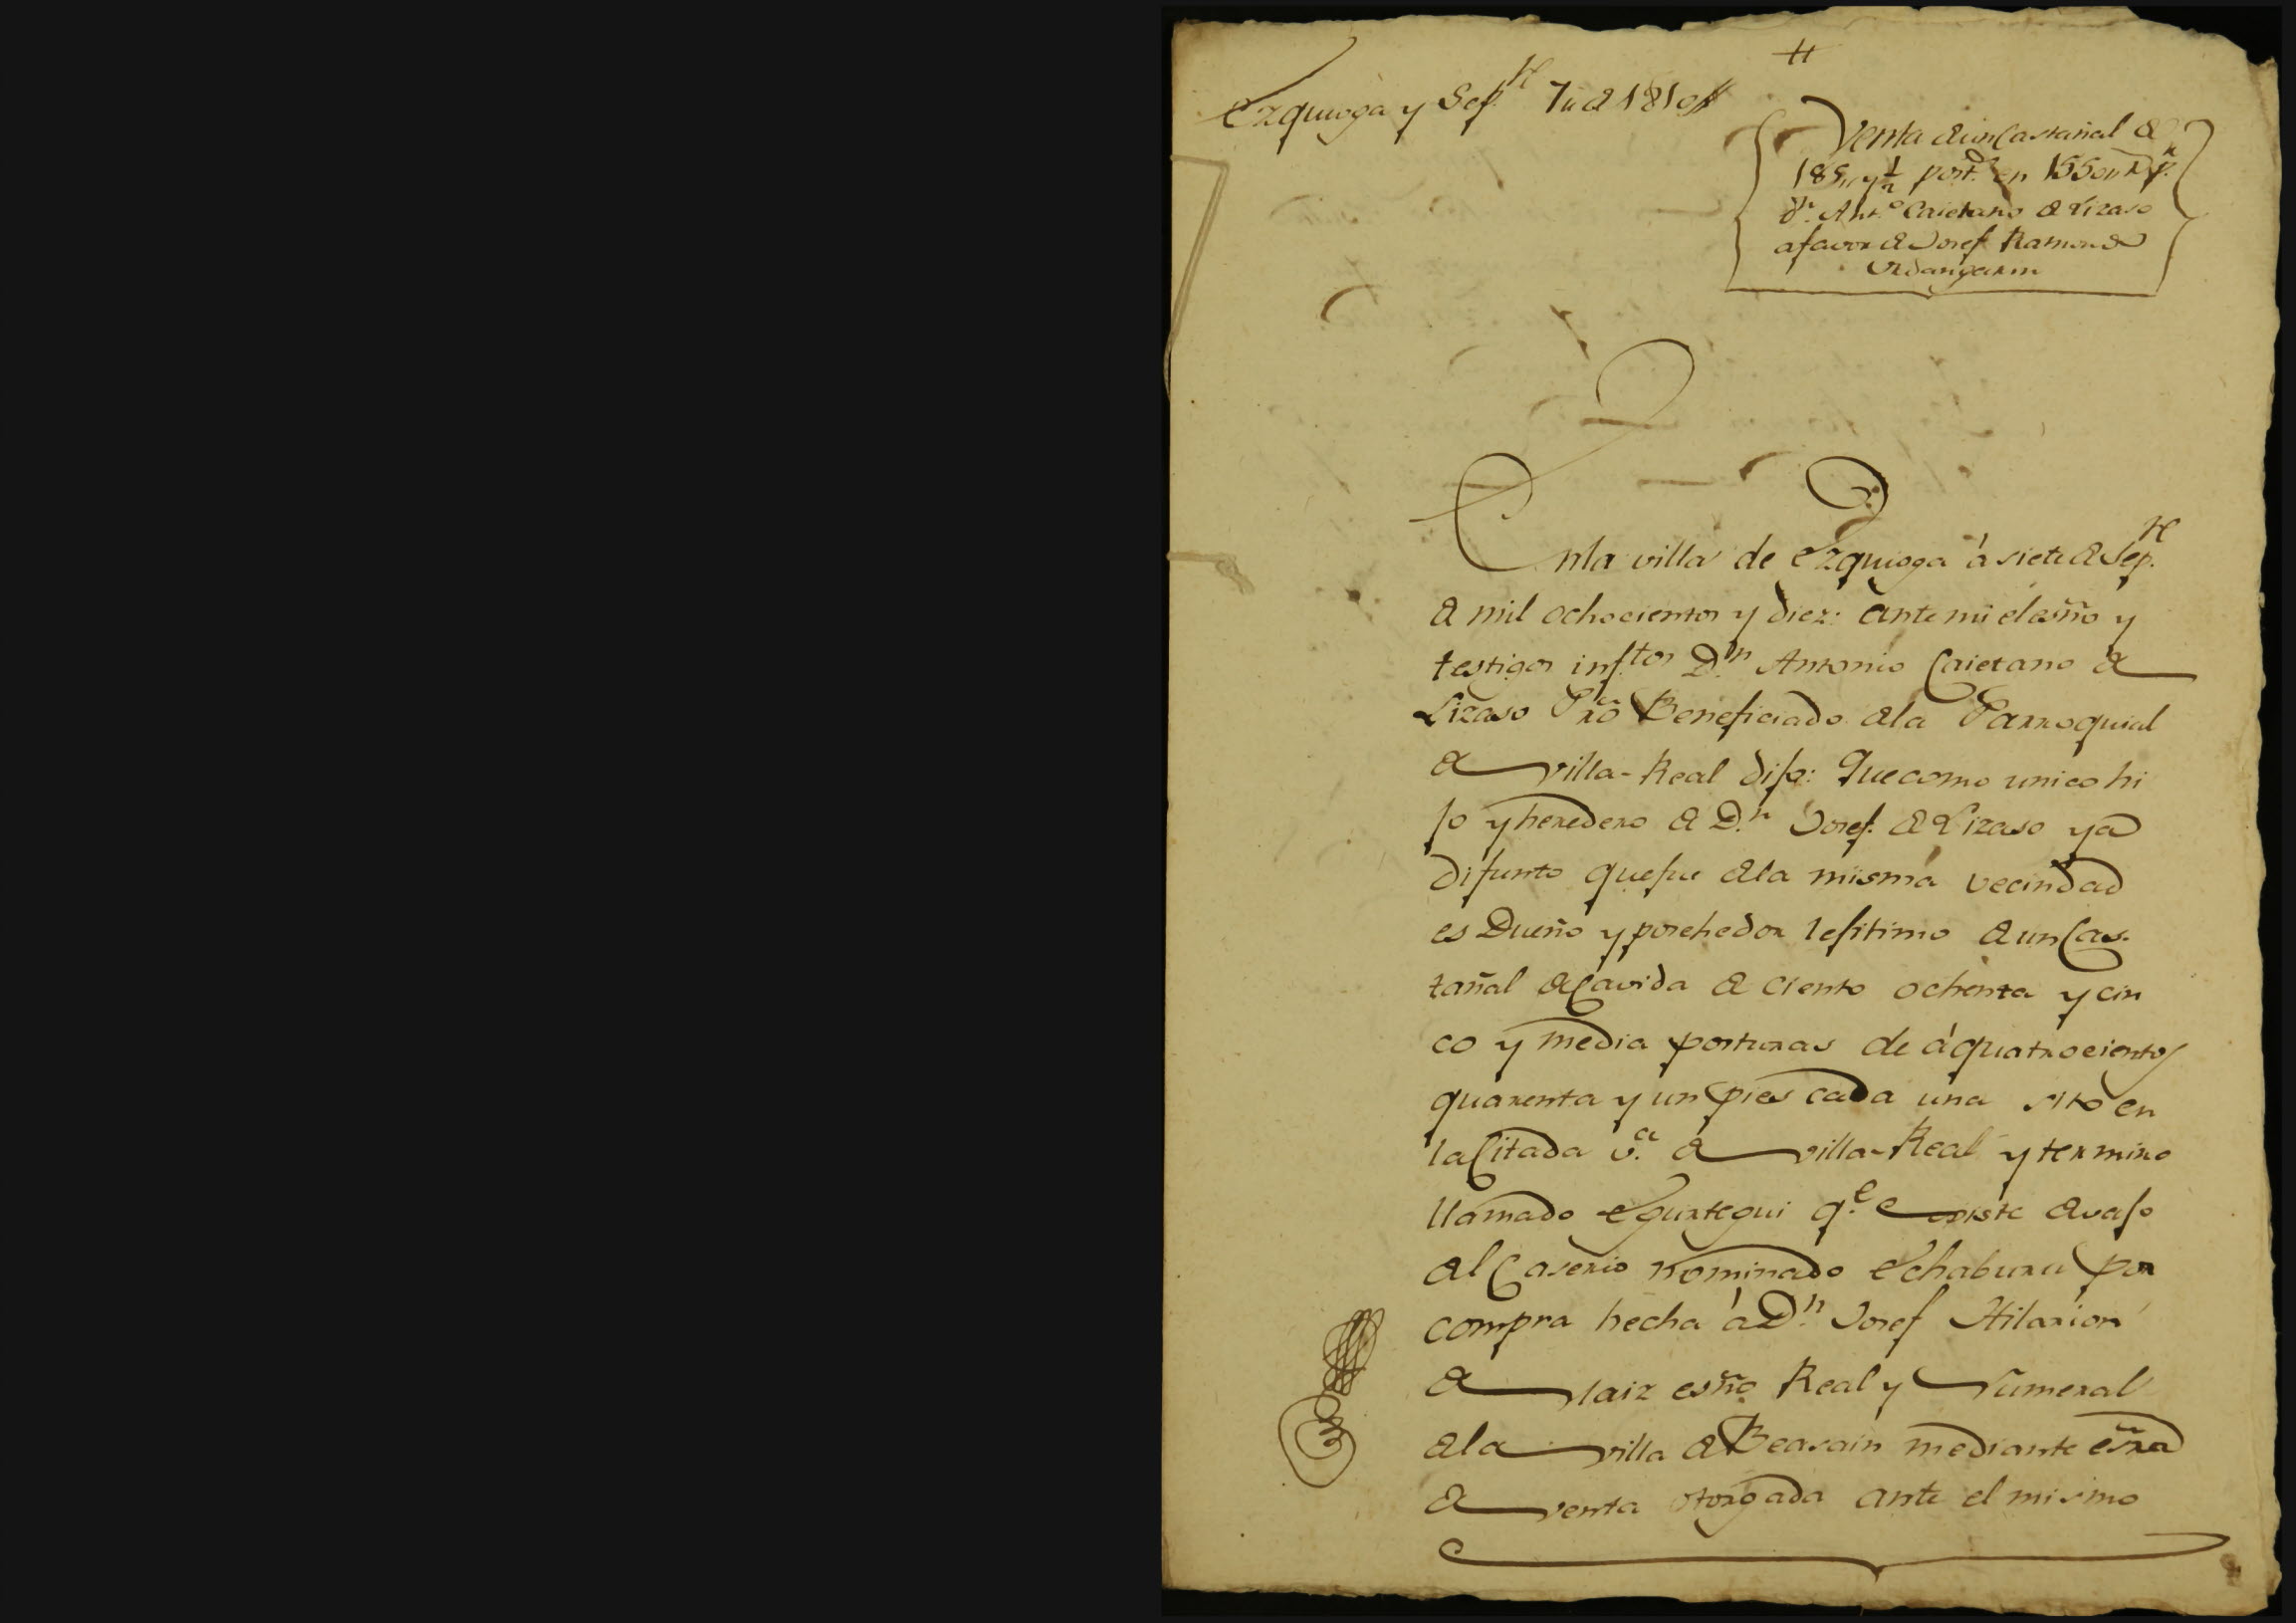 Ezquioga y Sep.re 7,, de 1810,,
Venta de un Castañal de
185,, y 1/2 post.s en 1550,, Rs p.r
D.n Ant.o Caietano de Lizaso
a favor de Josef Ramon de
Urdangarin
En la villa de Ezquioga à siete de Sep.re
de mil ochocientos y diez: ante mi el esño y
testigos inf.tos D.n Antonio Caietano de
Lizaso Pro Beneficiado de la Parroquial
de villa-Real dijo: Que como unico hi
jo y heredero de D.n Josef de Lizaso ya
difunto que fue de la misma vecindad
es Dueño y posehedor lejitimo de un Cas-
tañal de Cavida de ciento ochenta y cin
co y media posturas de á quatrocientos
quarenta y un pies cada una sito en
la Citada v.a de villa-Real y termino
llamado Egurtegui q.e existe devajo
del Caserio nominado Echaburu por
compra hecha à D.n Josef Hilarion
de Maiz esño Real y Numeral
de la villa de Beasain mediante esñra
de venta otorgada ante el mismo